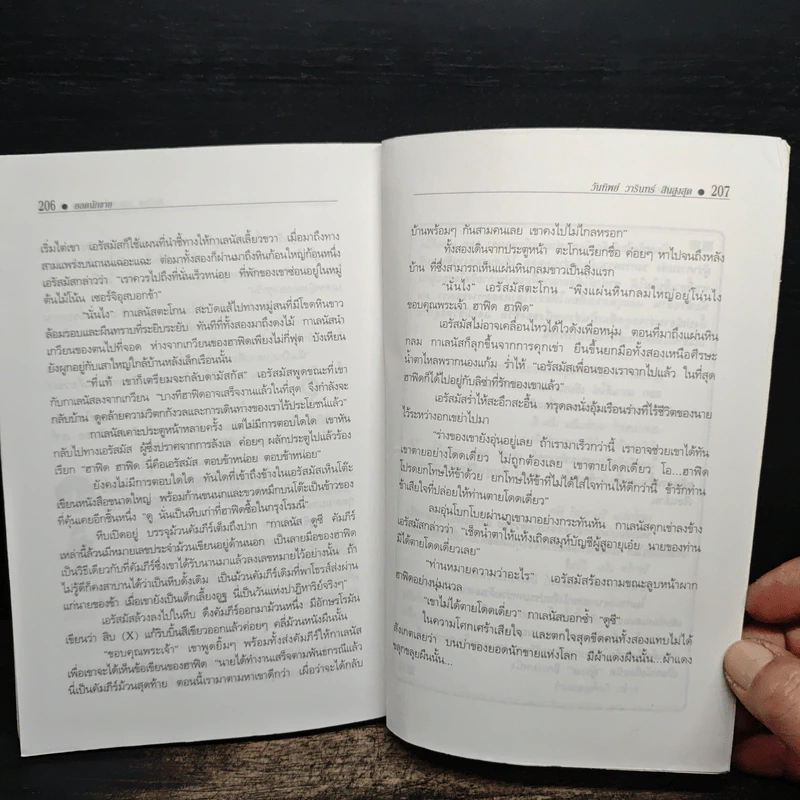 206 ● ยอดนักขาย
เริ่มไต่เขา เอรัสมัสก็ใช้แผนที่นำชี้ทางให้กาเลนัสเลี้ยวขวา เมื่อมาถึงทาง
สามแพร่งบนถนนเฉอะแฉะ ต่อมาทั้งสองก็ผ่านมาถึงหินก้อนใหญ่ก้อนหนึ่ง
เอรัสมัสกล่าวว่า "เราควรไปถึงที่นั่นเร็วหน่อย ที่พักของเขาซ่อนอยู่ในหมู่
ต้นไม้โน้น เซอร์จิอุสบอกข้า"
"นั่นไง" กาเลนัสตะโกน สะบัดแส้ไปทางหมู่สนที่มีโขดหินขาว
ล้อมรอบและผืนทรายที่ระยิบระยับ ทันทีที่ทั้งสองมาถึงดงไม้ กาเลนัสนำ
เกวียนของตนไปที่จอด ห่างจากเกวียนของฮาฟิดเพียงไม่กี่ฟุต บังเหียน
ยังผูกอยู่กับเสาใหญ่ใกล้บ้านหลังเล็กเรือนนั้น
"ที่แท้ เขาก็เตรียมจะกลับดามัสกัส" เอรัสมัสพูดขณะที่เขา
กับกาเลนัสลงจากเกวียน "บางทีฮาฟิดอาจเสร็จงานแล้วในที่สุด จึงกำลังจะ
กลับบ้าน ดูคล้ายความวิตกกังวลและการเดินทางของเราไร้ประโยชน์แล้ว"
กาเลนัสเคาะประตูหน้าหลายครั้ง แต่ไม่มีการตอบใดใด เขาหัน
กลับไปทางเอรัสมัส ผู้ซึ่งปราศจากการลังเล ค่อยๆ ผลักประตูไปแล้วร้อง
เรียก "ฮาฟิด ฮาฟิด นี่คือเอรัสมัส ตอบข้าหน่อย ตอบข้าหน่อย"
ยังคงไม่มีการตอบใดใด ทันใดที่เข้าถึงข้างในเอรัสมัสเห็นโต๊ะ
เขียนหนังสือขนาดใหญ่ พร้อมก้านขนนกและขวดหมึกบนโต๊ะเป็นข้าวของ
ที่คุ้นเคยอีกชิ้นหนึ่ง "ดู นั่นเป็นหีบเก่าที่ฮาฟิดซื้อในกรุงโรมนี่"
หีบเปิดอยู่ บรรจุม้วนคัมภีร์เต็มถึงปาก "กาเลนัส ดูซี คัมภีร์
เหล่านี้ล้วนมีหมายเลขประจำม้วนเขียนอยู่ด้านนอก เป็นลายมือของฮาฟิด
เป็นวิธีเดียวกับที่คัมภีร์ซึ่งเขาได้รับนานมาแล้วลงเลขหมายไว้อย่างนั้น ถ้า
ไม่รู้ดีก็คงสาบานได้ว่าเป็นหีบดั้งเดิม เป็นม้วนคัมภีร์เดิมที่พาโธรส์ส่งผ่าน
แก่นายของข้า เมื่อเขายังเป็นเด็กเลี้ยงอูฐ นี่เป็นวันแห่งปาฏิหาริย์จริงๆ"
เอรัสมัสล้วงลงไปในหีบ ดึงคัมภีร์ออกมาม้วนหนึ่ง มีอักษรโรมัน
เขียนว่า สิบ (X) แก้ริบบิ้นสีเขียวออกแล้วค่อยๆ คลี่ม้วนหนังผืนนั้น
"ขอบคุณพระเจ้า" เขาพูดยิ้มๆ พร้อมทั้งส่งคัมภีร์ให้กาเลนัส
เพื่อเขาจะได้เห็นข้อเขียนของฮาฟิด "นายได้ทำงานเสร็จตามพันธกรณีแล้ว
นี่เป็นคัมภีร์ม้วนสุดท้าย ตอนนี้เรามาตามหาเขาดีกว่า เผื่อว่าจะได้กลับ
วันทิพย์ วารินทร์ สินสูงสุด ● 207
บ้านพร้อมๆ กันสามคนเลย เขาคงไปไม่ไกลหรอก"
ทั้งสองเดินจากประตูหน้า ตะโกนเรียกชื่อ ค่อยๆ หาไปจนถึงหลัง
บ้าน ที่ซึ่งสามารถเห็นแผ่นหินกลมขาวเป็นสิ่งแรก
"นั่นไง" เอรัสมัสตะโกน "พิงแผ่นหินกลมใหญ่อยู่โน่นไง
ขอบคุณพระเจ้า ฮาฟิด ฮาฟิด"
เอรัสมัสไม่อาจเคลื่อนไหวได้ไวดั่งเพื่อหนุ่ม ตอนที่มาถึงแผ่นหิน
กลม กาเลนัสก็ลุกขึ้นจากการคุกเข่า ยืนขึ้นยกมือทั้งสองเหนือศีรษะ
น้ำตาไหลพรากนองแก้ม ร่ำไห้ "เอรัสมัสเพื่อนของเราจากไปแล้ว ในที่สุด
ฮาฟิดก็ได้ไปอยู่กับลิซ่าที่รักของเขาแล้ว"
เอรัสมัสร่ำไห้สะอึกสะอื้น ทรุดลงนั่งอุ้มเรือนร่างที่ไร้ชีวิตของนาย
ไว้ระหว่างอกเขย่าไปมา
"ร่างของเขายังอุ่นอยู่เลย ถ้าเรามาเร็วกว่านี้ เราอาจช่วยเขาได้ทัน
เขาตายอย่างโดดเดี่ยว ไม่ถูกต้องเลย เขาตายโดดเดี่ยว โอ...ฮาฟิด
โปรดยกโทษให้ข้าด้วย ยกโทษให้ข้าที่ไม่ได้ใส่ใจท่านให้ดีกว่านี้ ข้ารักท่าน
ข้าเสียใจที่ปล่อยให้ท่านตายโดดเดี่ยว"
ลมอุ่นโบกโบยผ่านภูเขามาอย่างกระทันหัน กาเลนัสคุกเข่าลงข้าง
เอรัสมัสกล่าวว่า "เช็ดน้ำตาให้แห้งเถิดสมุห์บัญชีผู้สูงอายุเอ๋ย นายของท่าน
มิได้ตายโดดเดี่ยวเลย"
"ท่านหมายความว่าอะไร" เอรัสมัสร้องถามขณะลูบหน้าผาก
ฮาฟิดอย่างนุ่มนวล
"เขาไม่ได้ตายโดดเดี่ยว" กาเลนัสบอกซ้ำ "ดูซี"
ในความโศกเศร้าเสียใจ และตกใจสุดขีดคนทั้งสองแทบไม่ได้
สังเกตเลยว่า บนบ่าของยอดนักขายแห่งโลก มีผ้าแดงผืนนั้น...ผ้าแดง
ขลุกขลุยผืนนั้น...